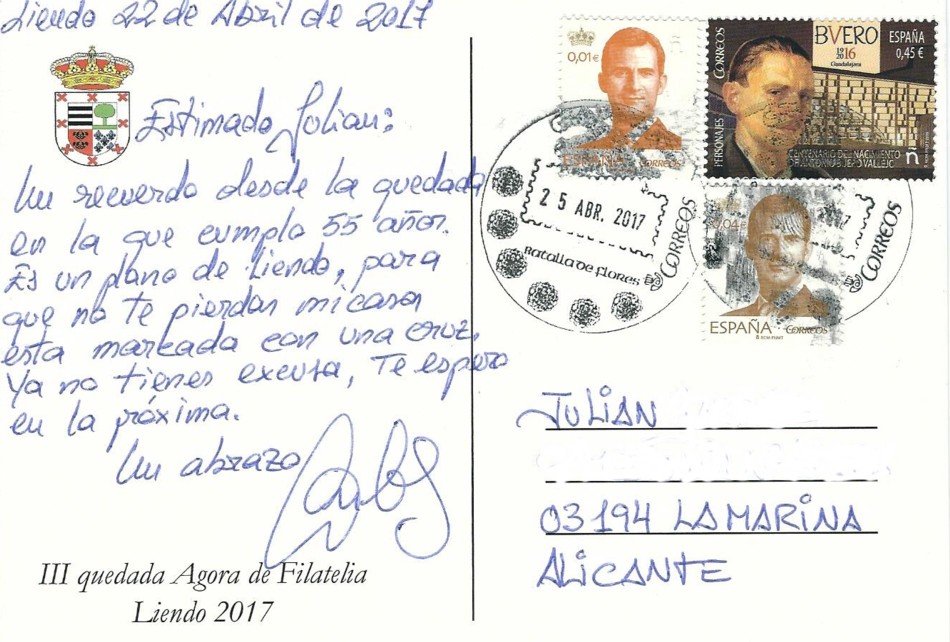 Liendo 22 de Abril de 2017
Estimado Julian:
Un recuerdo desde la quedada
en la que cumplo 55 años.
Es un plano de Liendo, para
que no te pierdas mi casa
esta marcada con una cruz,
Ya no tienes excusa, Te espero
en la próxima.
Un abrazo
III quedada Agora de Filatelia
Liendo 2017
0,01€
ESPAÑA CORREOS
CORREOS
BVERO
19
2016
Guadalajara
ESPAÑA
0,45€
PERSONAJES
CENTENARIO DEL NACIMIENTO
DE ANTONIO BUERO VALLEJO
ñ
25 ABR. 2017
Batalla de Flores
CORREOS
2017
CORREOS
ESPAÑA CORREOS
JULIAN
03194 LA MARINA
ALICANTE